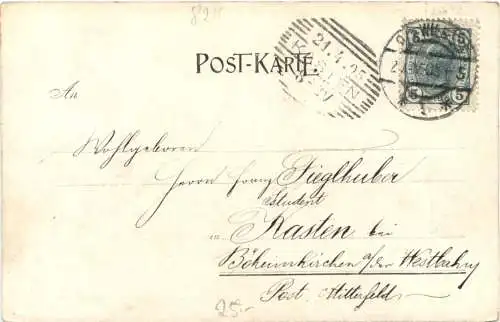 821
21.4.05
KASTEN
POST-KARTE.
5 5
An
Wohlgeboren
Herrn Franz Zieglhuber
Student
in Kasten bei
Böheimkirchen a/der Westbahn
Post. Mitterfeld
25.-